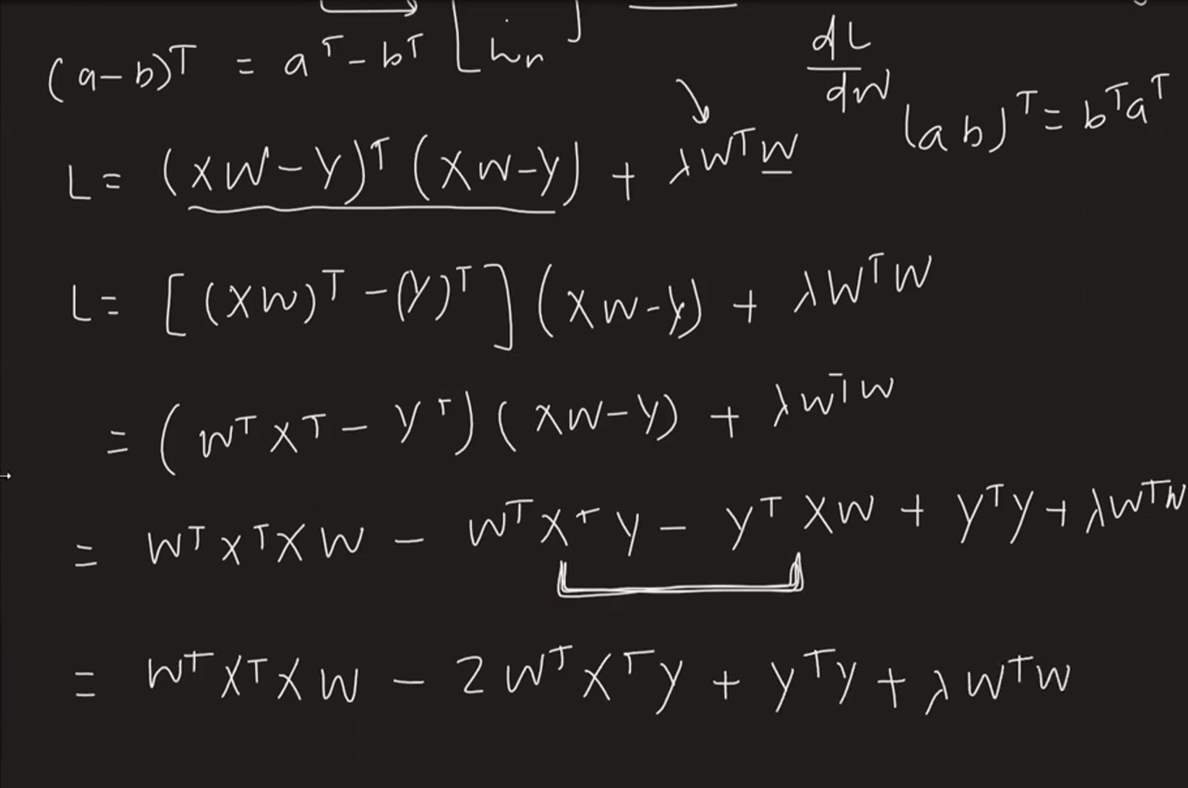 (a-b)ᵀ = aᵀ - bᵀ [ wₙ ]
dL/dW (ab)ᵀ = bᵀaᵀ
L = (XW-Y)ᵀ (XW-Y) + λWᵀW
L = [(XW)ᵀ - (Y)ᵀ] (XW-Y) + λWᵀW
= (WᵀXᵀ - Yᵀ) (XW-Y) + λWᵀW
= WᵀXᵀXW - WᵀXᵀY - YᵀXW + YᵀY + λWᵀW
= WᵀXᵀXW - 2WᵀXᵀY + YᵀY + λWᵀW